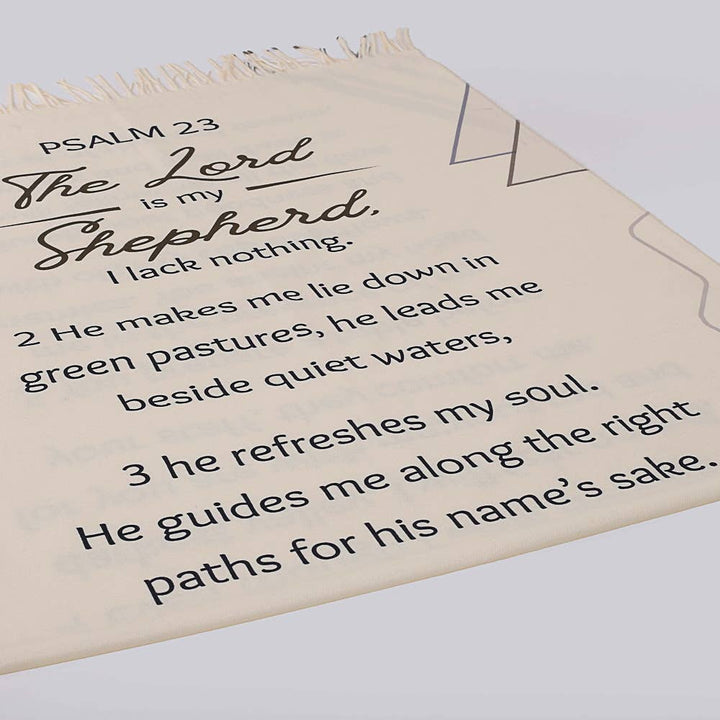 PSALM 23
The Lord
is my
Shepherd,
I lack nothing.
2 He makes me lie down in
green pastures, he leads me
beside quiet waters,
3 he refreshes my soul.
He guides me along the right
paths for his name's sake.